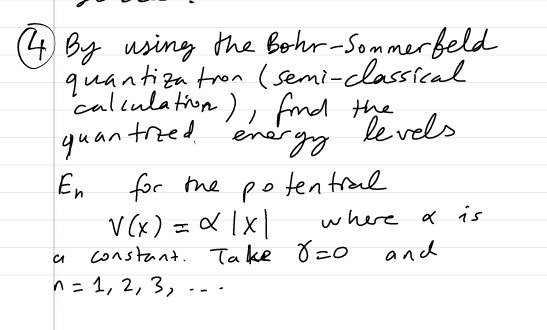 ④ By using the Bohr-Sommerfeld
quantization (semi-classical
calculation), find the
quantized energy levels
En for the potential
V(x) = α |x| where α is
a constant. Take γ=0 and
n = 1, 2, 3, ...